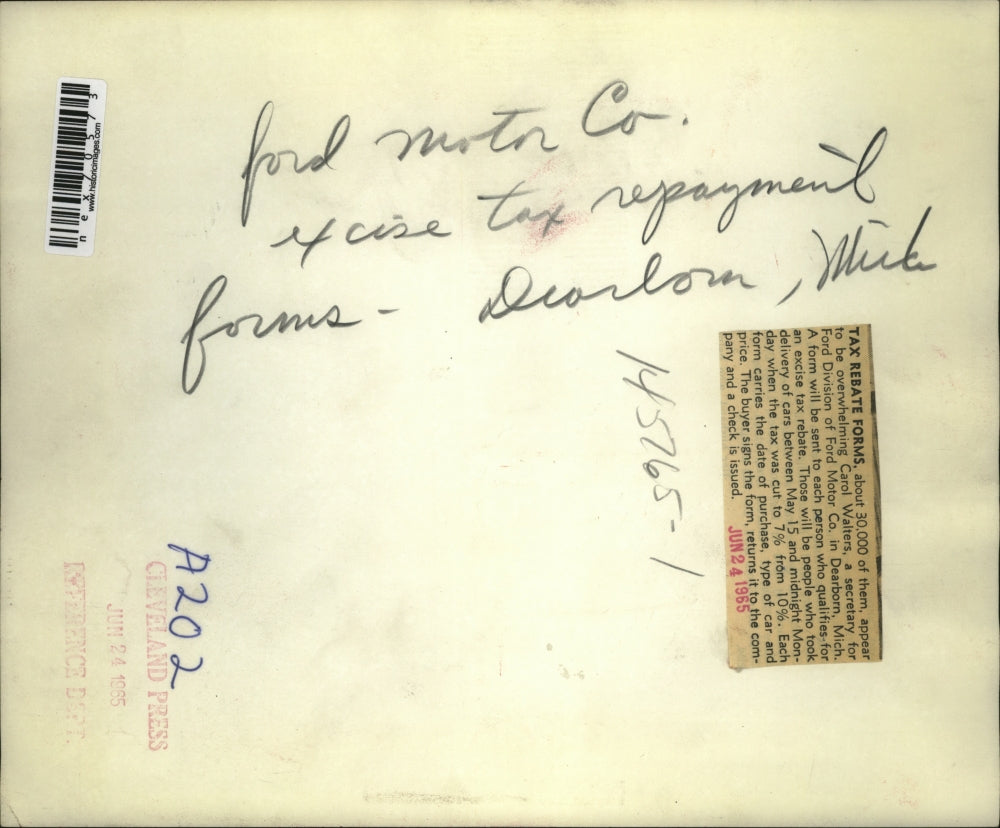 ford Motor Co.
excise tax repayment
forms - Dearborn, Mich
145765-1
TAX REBATE FORMS, about 30,000 of them, appear
to be overwhelming Carol Walters, a secretary for
Ford Division of Ford Motor Co. in Dearborn, Mich.
A form will be sent to each person who qualifies for
an excise tax rebate. Those will be people who took
delivery of cars between May 15 and midnight Mon-
day when the tax was cut to 7% from 10%. Each
form carries the date of purchase, type of car and
price. The buyer signs the form, returns it to the com-
pany and a check is issued.
JUN 24 1965
A202
CLEVELAND PRESS
JUN 24 1965
REFERENCE DEPT.
www.historicimages.com